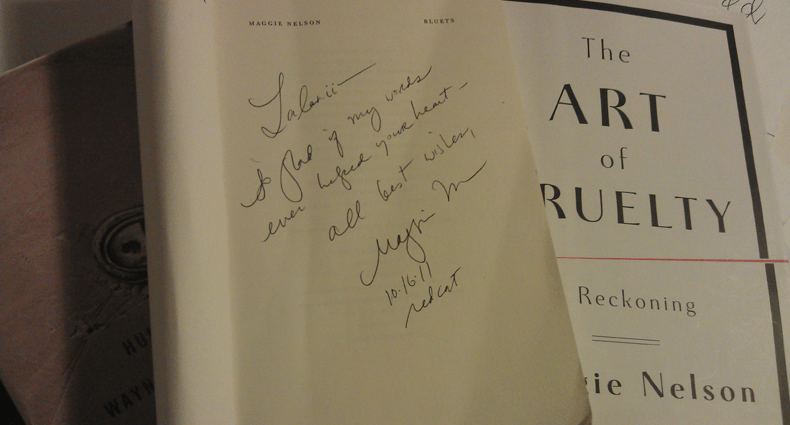 MAGGIE NELSON BLUETS
Lalanii—
So glad if my words
ever helped your heart—
all best wishes,
Maggie N
10.16.11
redcat
The
ART
of
RUELTY
Reckoning
gie Nelson
HU
WAY